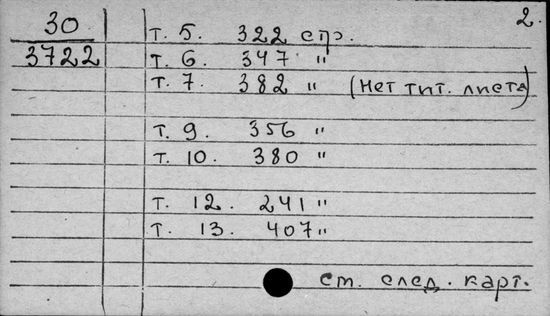 2.
30
3722
т. 5. 322 стр.
т. 6. 347 "
т. 7. 382 " (Нет тит. листа)
т. 9. 356 "
т. 10. 380 "
т. 12. 241 "
т. 13. 407 "
см. след. карт.